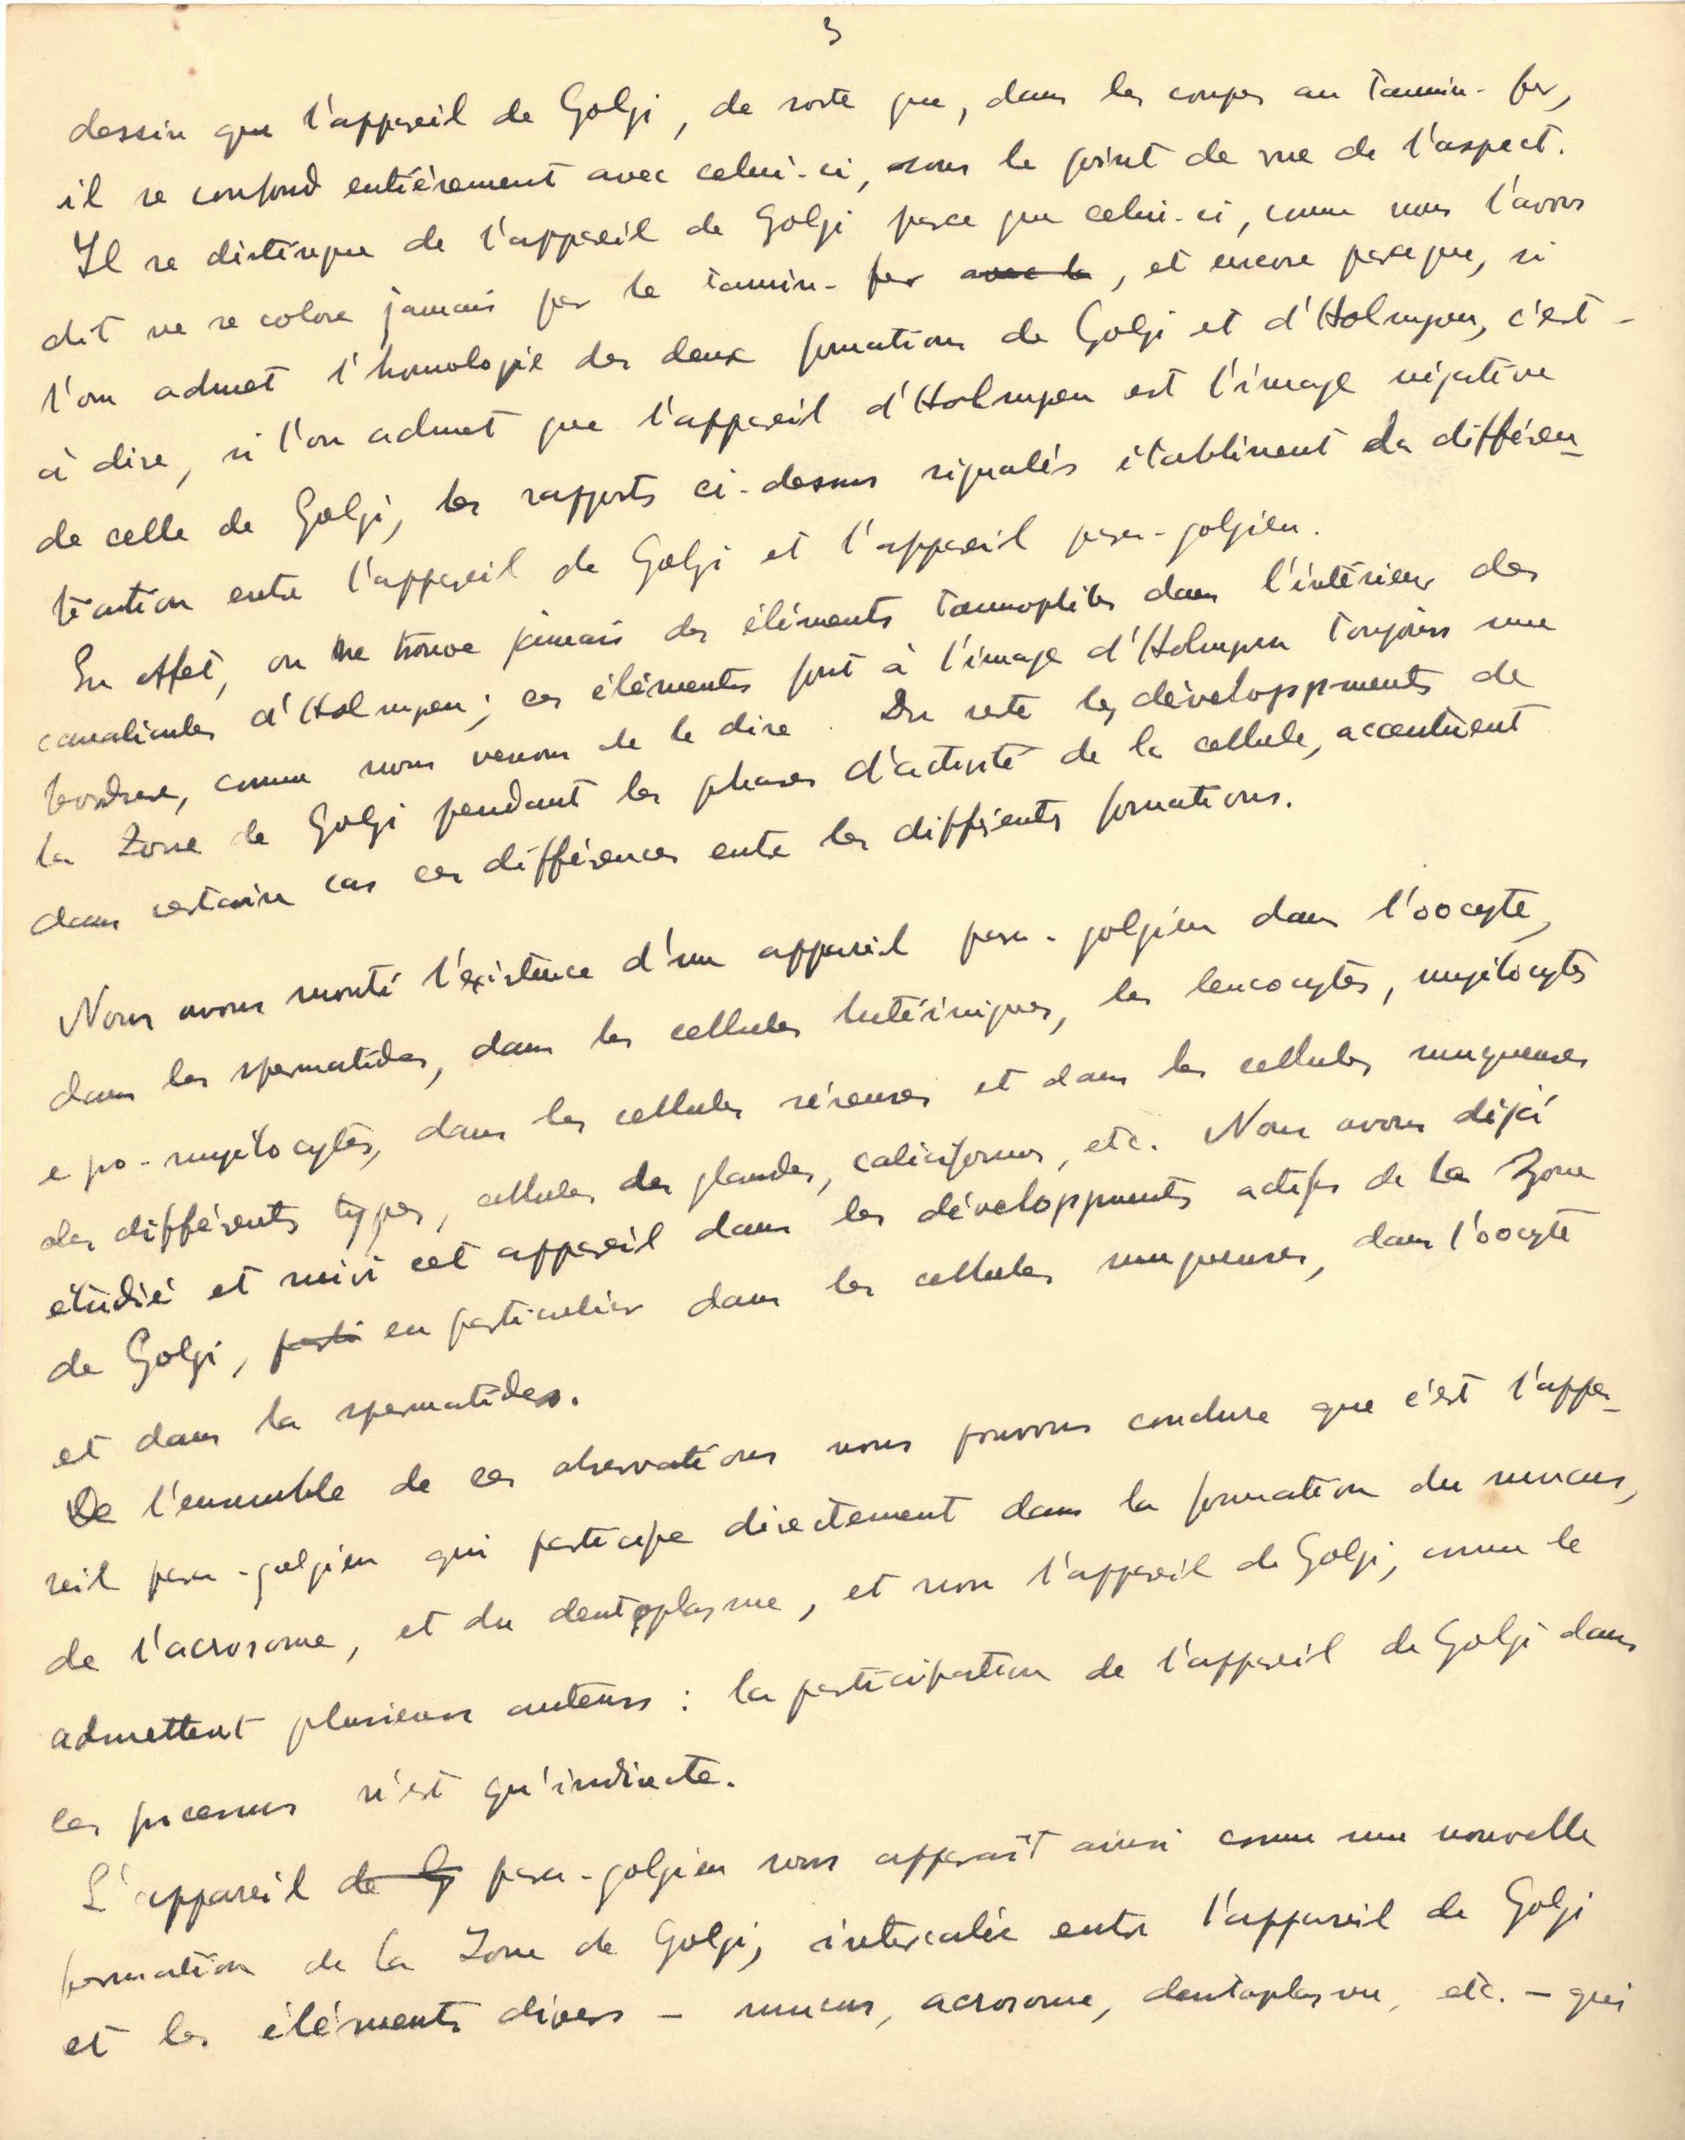 3
dessin que l'appareil de Golgi, de sorte que, dans les coupes au tannin-fer,
il se confond entièrement avec celui-ci, sous le point de vue de l'aspect.
Il se distingue de l'appareil de Golgi parce que celui-ci, comme nous l'avons
dit ne se colore jamais par le tannin-fer avec le, et encore parce que, si
l'on admet l'homologie des deux formations de Golgi et d'Holmgren, c'est-
à dire, si l'on admet que l'appareil d'Holmgren est l'image négative
de celle de Golgi, les rapports ci-dessus signalés établissent la différen-
tiation entre l'appareil de Golgi et l'appareil para-golgien.
En effet, on ne trouve jamais des éléments tannophiles dans l'intérieur des
canalicules d'Holmgren; ces éléments font à l'image d'Holmgren toujours une
bordure, comme nous venons de le dire. Du reste les développements de
la Zone de Golgi pendant les phases d'activité de la cellule, accentuent
dans certains cas ces différences entre les différents formations.
Nous avons montré l'existence d'un appareil para-golgien dans l'oocyte,
dans les spermatides, dans les cellules lutéiniques, les leucocytes, myélocytes
e pro-myélocytes, dans les cellules séreuses et dans les cellules muqueuses
des différents types, cellules des glandes, caliciformes, etc. Nous avons déjà
étudié et suivi cet appareil dans les développements actifs de la Zone
de Golgi, parti en particulier dans les cellules muqueuses, dans l'oocyte
et dans la spermatides.
De l'ensemble de ces observations nous pouvons conclure que c'est l'appa-
reil para-golgien qui participe directement dans la formation du mucus,
de l'acrosome, et du deutoplasme, et non l'appareil de Golgi, comme le
admettent plusieurs auteurs: la participation de l'appareil de Golgi dans
ces processus n'est qu'indirecte.
L'appareil de G para-golgien nous apparaît ainsi comme une nouvelle
formation de la Zone de Golgi, intercalée entre l'appareil de Golgi
et les éléments divers - mucus, acrosome, deutoplasme, etc. - qui